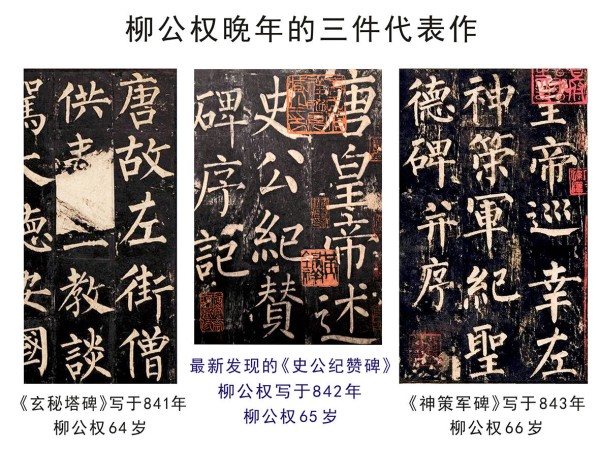 柳公权晚年的三件代表作
唐故左街僧
供教談
駕大德安國
《玄秘塔碑》写于841年
柳公权64岁
唐皇帝述
史公紀贊
碑序記
最新发现的《史公纪赞碑》
柳公权写于842年
柳公权65岁
皇帝巡幸左
神策軍紀聖
德碑并序
《神策军碑》写于843年
柳公权66岁